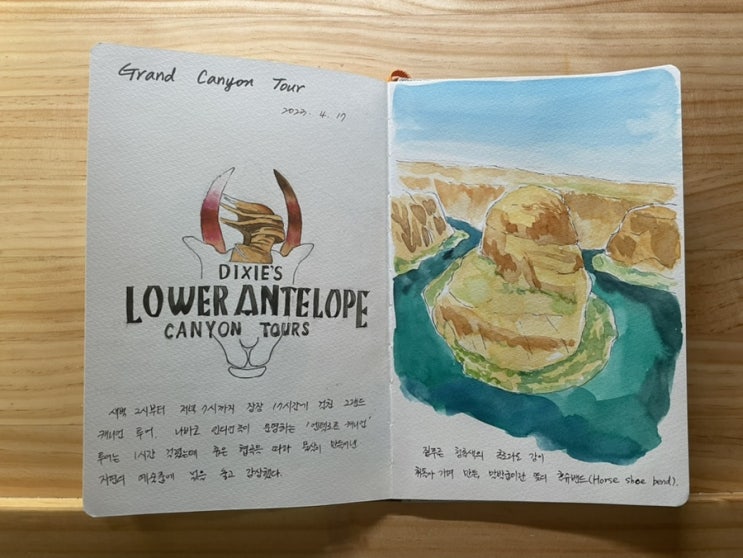 Grand Canyon Tour
2023. 4. 17
DIXIE'S
LOWER ANTELOPE
CANYON TOURS
새벽 2시부터 저녁 7시까지 장장 17시간에 걸친 그랜드
캐니언 투어. 나바호 인디언족이 운영하는 '엔텔로프 캐니언'
투어는 1시간 걸렸는데 좁은 협곡을 따라 물살이 만들어낸
자연의 예술품에 넋을 놓고 감상했다.
짙푸른 콜로라도 강이
휘돌아 가며 만든, 말발굽이란 뜻의 홀슈밴드(Horse shoe bend).